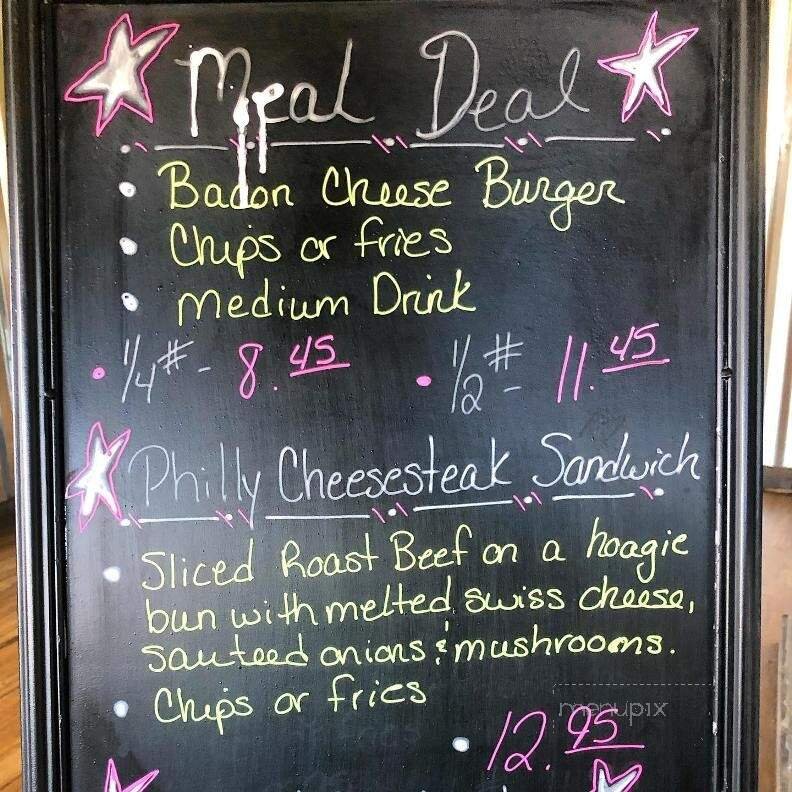 Meal Deal
• Bacon Cheese Burger
• Chips or fries
• Medium Drink
• 1/4# - 8.45 • 1/2# - 11.45
Philly Cheesesteak Sandwich
• Sliced Roast Beef on a hoagie
bun with melted swiss cheese,
sauteed onions & mushrooms.
• Chips or fries
menupix
• 12.95